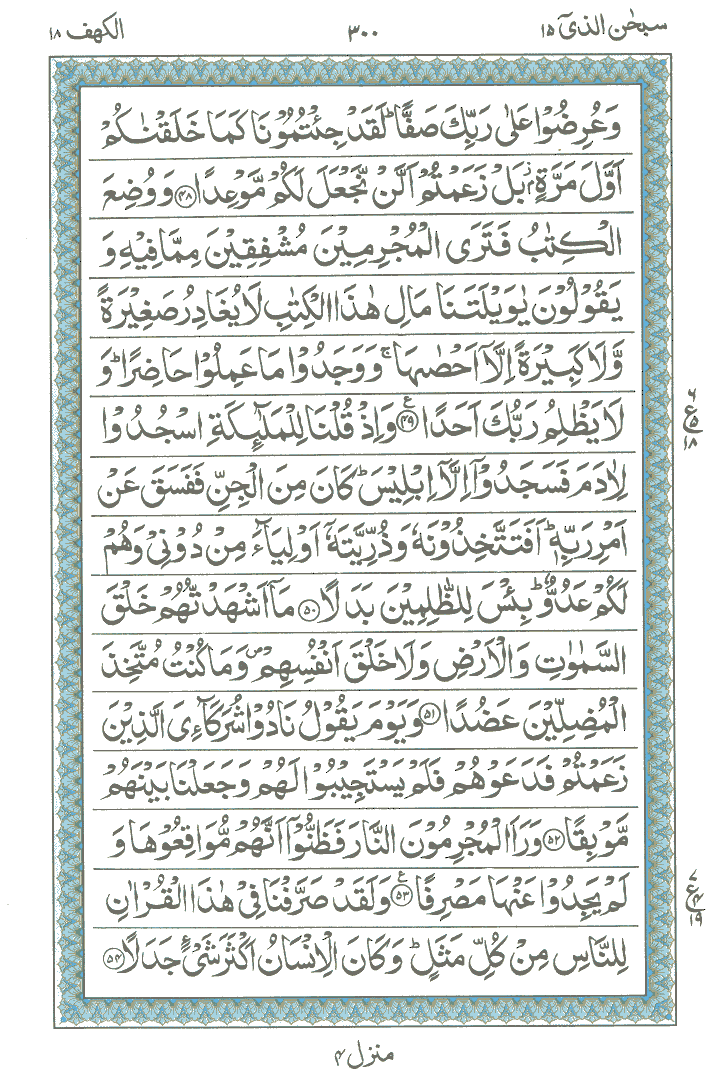 سبحٰن الذیٓ ١٥ ٣٠٠ الكهف ١٨
وَعُرِضُوۡا عَلٰى رَبِّكَ صَفًّا ؕ لَقَدۡ جِئۡتُمُوۡنَا كَمَا خَلَقۡنٰكُمۡ
اَوَّلَ مَرَّةٍۭ ز بَلۡ زَعَمۡتُمۡ اَلَّنۡ نَّجۡعَلَ لَكُمۡ مَّوۡعِدًا ﴿۴۸﴾ وَ وُضِعَ
الۡكِتٰبُ فَتَرَى الۡمُجۡرِمِيۡنَ مُشۡفِقِيۡنَ مِمَّا فِيۡهِ وَ
يَقُوۡلُوۡنَ يٰوَيۡلَتَنَا مَالِ هٰذَا الۡكِتٰبِ لَا يُغَادِرُ صَغِيۡرَةً
وَّلَا كَبِيۡرَةً اِلَّاۤ اَحۡصٰٮهَا ۚ وَوَجَدُوۡا مَا عَمِلُوۡا حَاضِرًا ؕ وَ
لَا يَظۡلِمُ رَبُّكَ اَحَدًا ﴿۴۹﴾ ع وَاِذۡ قُلۡنَا لِلۡمَلٰٓٮِٕكَةِ اسۡجُدُوۡا
٦
ع ٥
١٨
لِاٰدَمَ فَسَجَدُوۡۤا اِلَّاۤ اِبۡلِيۡسَ ؕ كَانَ مِنَ الۡجِنِّ فَفَسَقَ عَنۡ
اَمۡرِ رَبِّهٖ ؕ اَفَتَتَّخِذُوۡنَهٗ وَ ذُرِّيَّتَهٗۤ اَوۡلِيَآءَ مِنۡ دُوۡنِىۡ وَهُمۡ
لَكُمۡ عَدُوٌّ ؕ بِئۡسَ لِلظّٰلِمِيۡنَ بَدَلًا ﴿۵۰﴾ مَاۤ اَشۡهَدْتُّهُمۡ خَلۡقَ
السَّمٰوٰتِ وَالۡاَرۡضِ وَلَا خَلۡقَ اَنۡفُسِهِمۡ ص وَمَا كُنۡتُ مُتَّخِذَ
الۡمُضِلِّيۡنَ عَضُدًا ﴿۵۱﴾ وَيَوۡمَ يَقُوۡلُ نَادُوۡا شُرَكَآءِىَ الَّذِيۡنَ
زَعَمۡتُمۡ فَدَعَوۡهُمۡ فَلَمۡ يَسۡتَجِيۡبُوۡا لَهُمۡ وَجَعَلۡنَا بَيۡنَهُمۡ
مَّوۡبِقًا ﴿۵۲﴾ وَرَاَ الۡمُجۡرِمُوۡنَ النَّارَ فَظَنُّوۡۤا اَنَّهُمۡ مُّوَاقِعُوۡهَا وَ
لَمۡ يَجِدُوۡا عَنۡهَا مَصۡرِفًا ﴿۵۳﴾ ع وَلَقَدۡ صَرَّفۡنَا فِىۡ هٰذَا الۡقُرۡاٰنِ
٧
ع ۴
١٩
لِلنَّاسِ مِنۡ كُلِّ مَثَلٍ ؕ وَكَانَ الۡاِنۡسَانُ اَكۡثَرَ شَىۡءٍ جَدَلًا ﴿۵۴﴾
منزل ۴